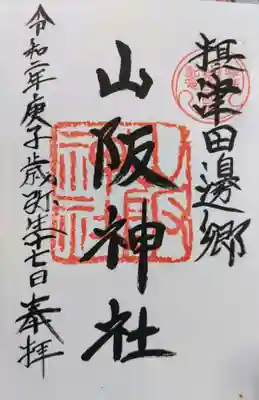 摂津田邊郷
山阪神社
令和二年庚子歳弥生七日奉拝